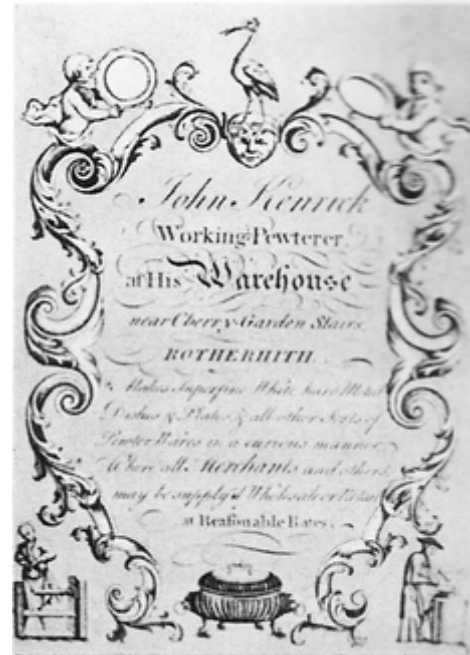 John Kenrick
Working Pewterer,
at His Warehouse
near Cherry-Garden Stairs
ROTHERHITH.
Makes Superfine White hard Metal
Dishes & Plates & all other Sorts of
Pewter Wares in a curious manner,
Where all Merchants and others,
may be supply'd Wholesale or Retail
at Reasonable Rates.